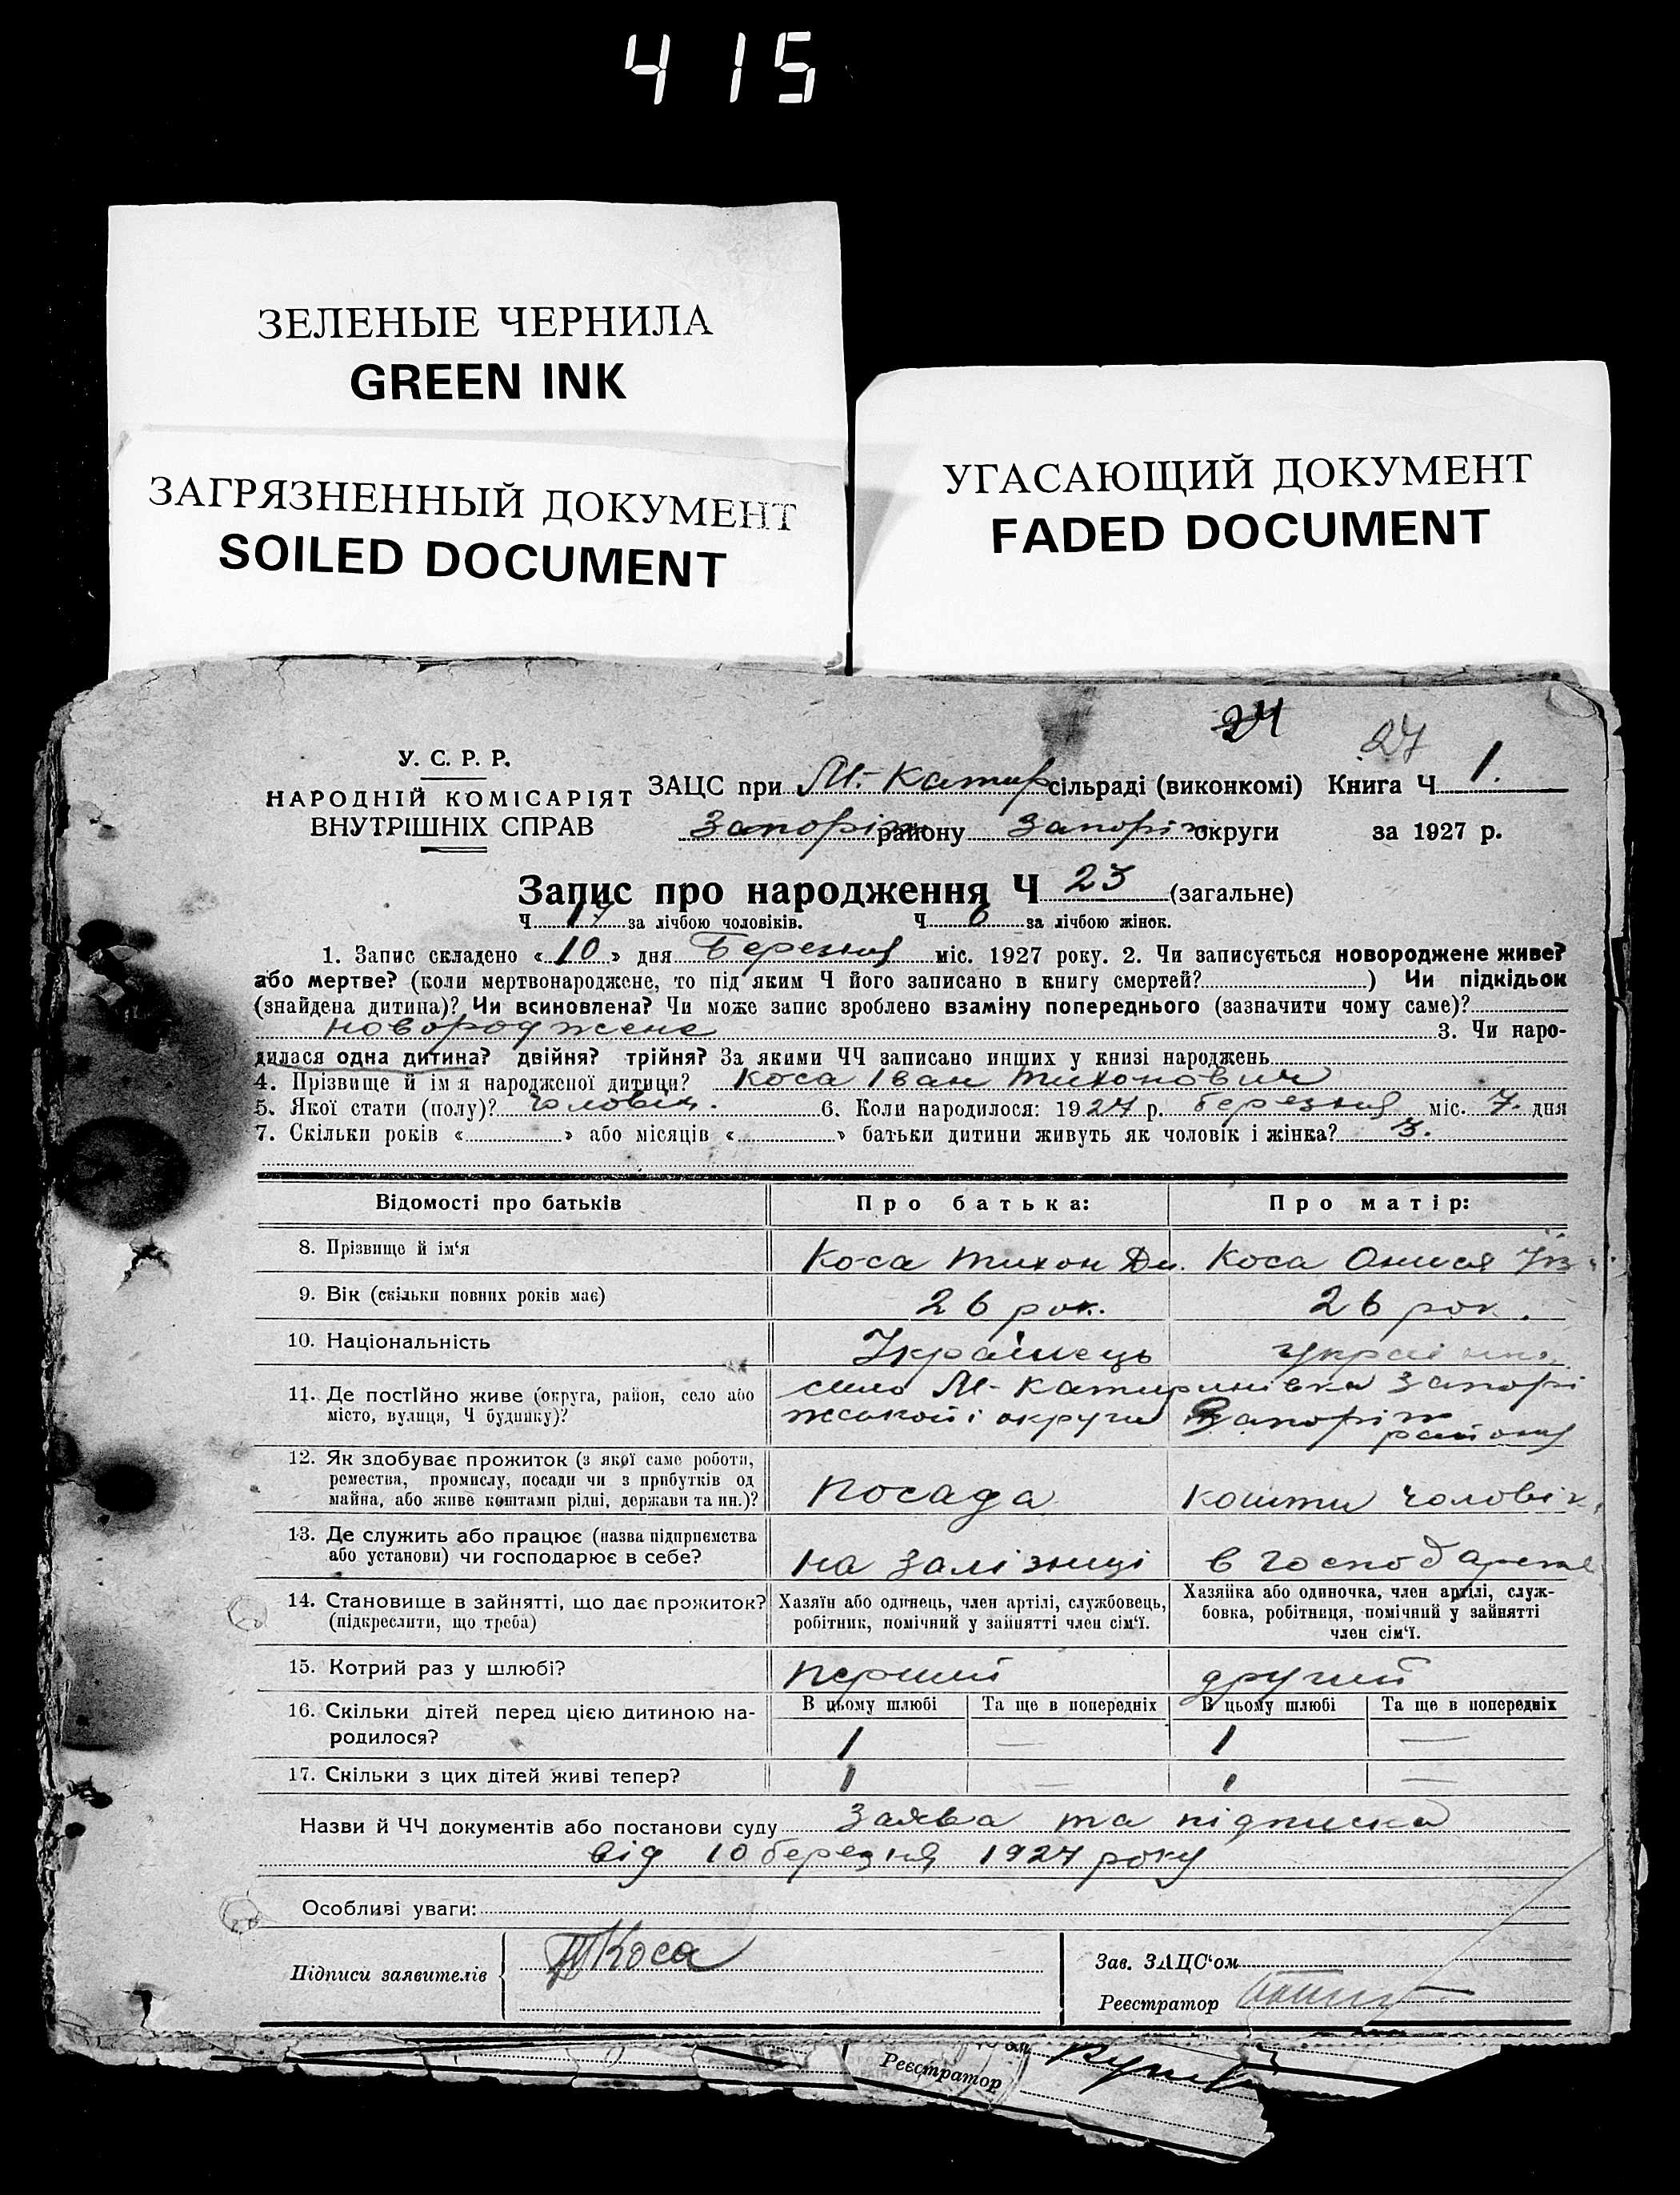 415
ЗЕЛЕНЫЕ ЧЕРНИЛА
GREEN INK
ЗАГРЯЗНЕННЫЙ ДОКУМЕНТ
SOILED DOCUMENT
УГАСАЮЩИЙ ДОКУМЕНТ
FADED DOCUMENT
24 27
У. С. Р. Р.
НАРОДНІЙ КОМІСАРІЯТ
ВНУТРІШНІХ СПРАВ
ЗАЦС при М.-Катер сільраді (виконкомі) Книга Ч 1.
Запоріж району Запоріж округи за 1927 р.
Запис про народження Ч 23 (загальне)
Ч 17 за лічбою чоловіків. Ч 6 за лічбою жінок.
1. Запис складено « 10 » дня Березня міс. 1927 року. 2. Чи записується новороджене живе?
або мертве? (коли мертвонароджене, то під яким Ч його записано в книгу смертей? ) Чи підкідьок
(знайдена дитина)? Чи всиновлена? Чи може запис зроблено взаміну попереднього (зазначити чому саме)?
новороджене 3. Чи наро-
дилася одна дитина? двійня? трійня? За якими ЧЧ записано инших у книзі народжень
4. Прізвище й ім'я народженої дитини? Коса Іван Тихонович
5. Якої стати (полу)? чоловіч. 6. Коли народилося: 1927 р. березня міс. 7. дня
7. Скільки років « » або місяців « » батьки дитини живуть як чоловік і жінка? 3.
Відомості про батьків Про батька: Про матір:
8. Прізвище й ім'я Коса Тихон Дм. Коса Онися
9. Вік (скільки повних років має) 26 рок. 26 рок.
10. Національність Українець Україінка
11. Де постійно живе (округа, район, село або село М-Катеринівка Запорі
місто, вулиця, Ч будинку)? жськоїі округи Запоріж
району
12. Як здобуває прожиток (з якої саме роботи,
ремества, промислу, посади чи з прибутків од
майна, або живе коштами рідні, держави та ин.)? посада кошти чоловік
13. Де служить або працює (назва підприємства
або установи) чи господарює в себе? на залізниці в господарстві
14. Становище в зайнятті, що дає прожиток? Хазяїн або одинець, член артілі, службовець, Хазяйка або одиночка, член артілі, служ-
(підкреслити, що треба) робітник, помічний у зайнятті член сім'ї. бовка, робітниця, помічний у зайнятті
член сім'ї.
15. Котрий раз у шлюбі? перший другий
16. Скільки дітей перед цією дитиною на- В цьому шлюбі Та ще в попередніх В цьому шлюбі Та ще в попередніх
родилося? 1 — 1 —
17. Скільки з цих дітей живі тепер? 1 — 1 —
Назви й ЧЧ документів або постанови суду Заява та підписка
від 10 березня 1927 року
Особливі уваги:
Підписи заявителів ТКоса
Зав. ЗАЦС'ом
Реєстратор
Реєстратор